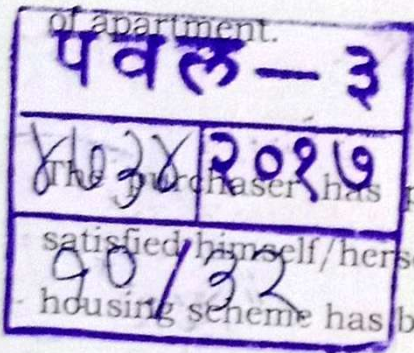 of apartment.
पवल — ३
४७३४ २०१७
The purchaser has
१०/३२
satisfied himself/herse
housing scheme has b